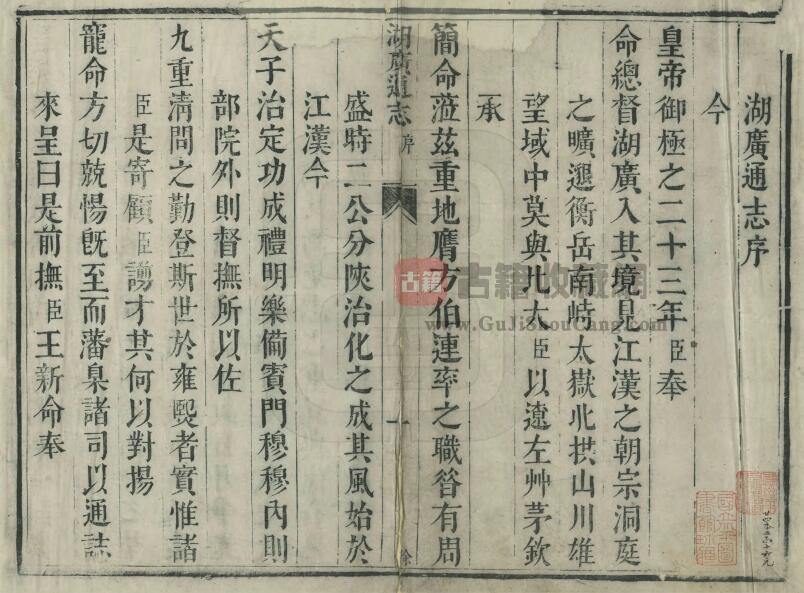 湖廣通志序
今
皇帝御極之二十三年臣奉
命總督湖廣入其境見江漢之朝宗洞庭
之曠邈衡岳南峙太嶽北拱山川雄
望域中莫與比大臣以遼左艸茅欽
承
簡命蒞茲重地膺方伯連率之職昝有周
湖廣通志 序 一 徐
盛時二公分陝治化之成其風始於
江漢今
天子治定功成禮明樂備賓門穆穆內則
部院外則督撫所以佐
九重清問之勤登斯世於雍熙者實惟諸
臣是寄顧臣謭才其何以對揚
寵命方切兢惕旣至而藩臬諸司以通誌
來呈曰是前撫臣王新命奉
古籍 古籍收藏網
www.GuJiShouCang.com